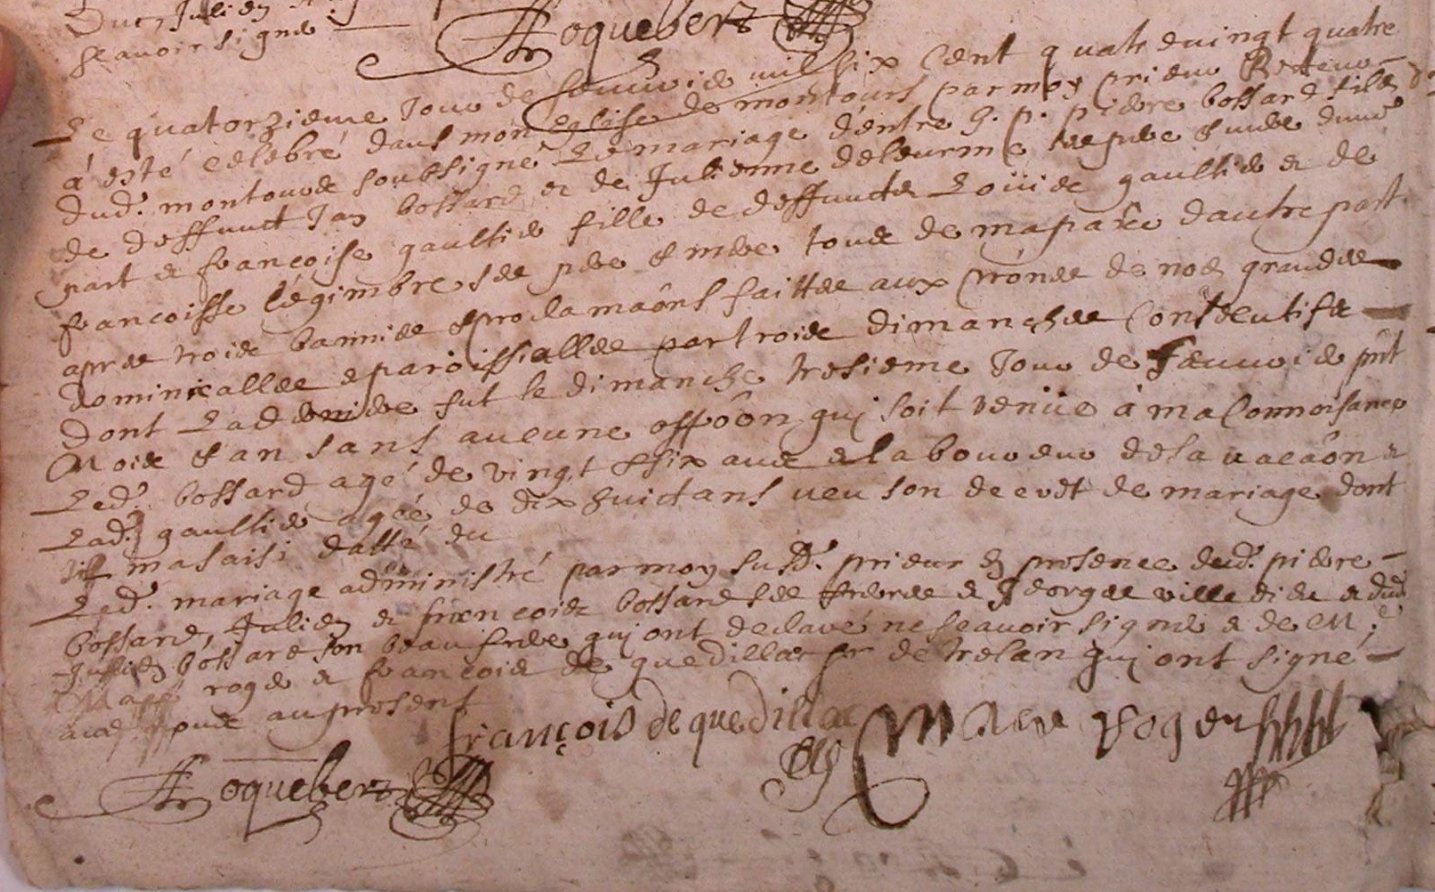 Duc, Julien
scavoir signer
F Roquebert
Le quatorzieme Jour de feuvrier mil six cent quatre vingt quatre
a esté celebré dans mon eglise de montours par moy prieur Recteur
dud. montours soubsigné Le mariage d'entre pierre bossard fils
de deffunct Jan bossard et de Julienne delourme ses pere & mere dune
part & francoise gaultier fille de deffuncts Loüis gaultier & de
francoisse Légimbre ses pere & mere tous de ma parœ dautre part
apres trois bannies & proclamaôns faittes aux prônes de nos grandes
dominicalles & paroissialles par trois dimanches Consecutifs
dont La derniere fut le dimanche tresieme Jour de feuvrier pñt
mois & an sans aucune oppôon qui soit venüe a ma Connoisance
Led. bossard agé de vingt & six ans & laboureur de la vacaôn &
Lad. gaultier agée de dix huict ans veu son decret de mariage dont
il masaisi datté du
Led. mariage administré par moy susd. prieur en presence dud. pierre
bossard, Julien & francois bossard ses freres & Georges villedieu & dud.
Julien bossard son beaufrere qui ont declaré ne scavoir signer & de M
Marc roger & francois de quedillac sr de trelan qui ont signé
avec au present
françois de quedillac
Marc Roger
F Roquebert